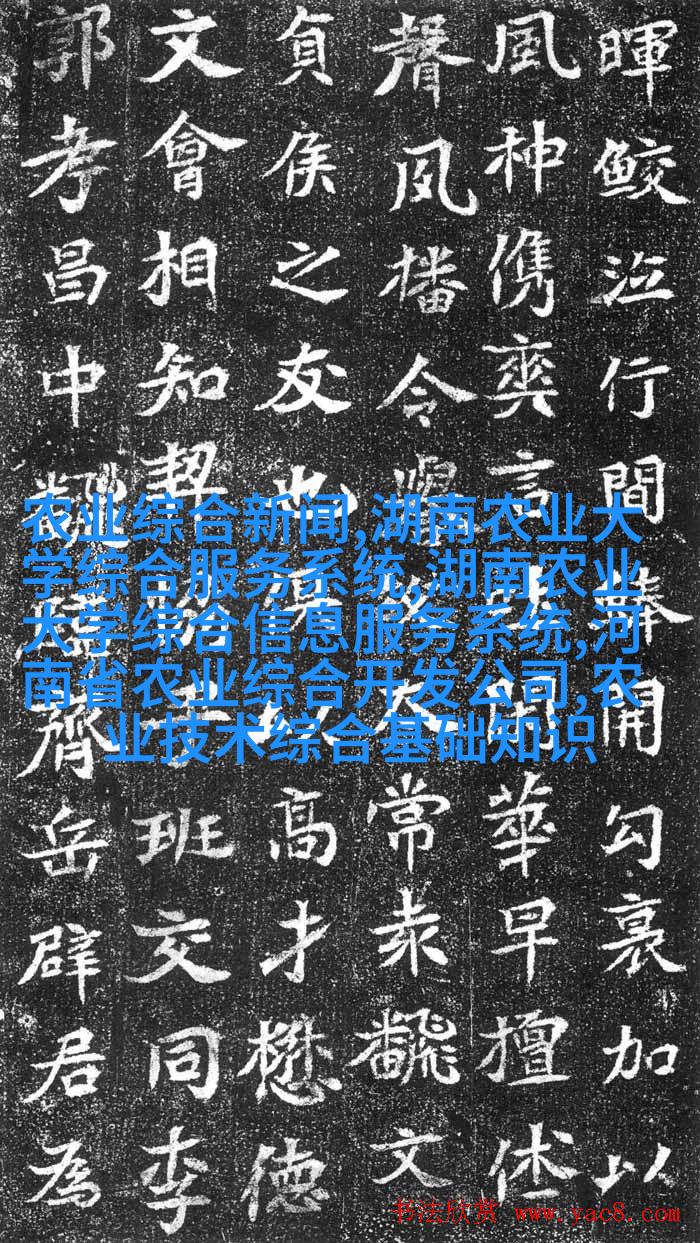 暉鮫泣行間開勾裏加以
風神儁爽言華早擅
聲夙播令太常永飜文
侯之友也以高才懋德
文會相知契子班交同李
郭孝昌中齊岳辟君為
农业综合新闻,湖南农业大
学综合服务系统,湖南农业
大学综合信息服务系统,河
南省农业综合开发公司,农
业技术综合基础知识
书法欣赏 www.yac8.com